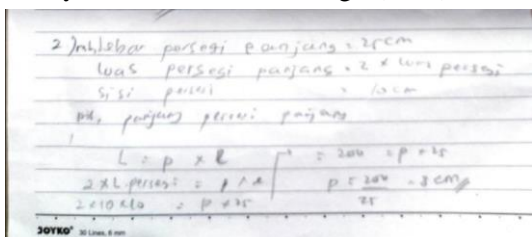 2) lebar persegi panjang = 25 cm
luas persegi panjang = 2 x luas persegi
sisi persegi = 10 cm
panjang persegi panjang
L = p x l
2 x L persegi = p x l
2 x 10 x 10 = p x 25
= 200 = p x 25
p = 200 = 8 cm
25
JOYKO 30 Lines, 6 mm